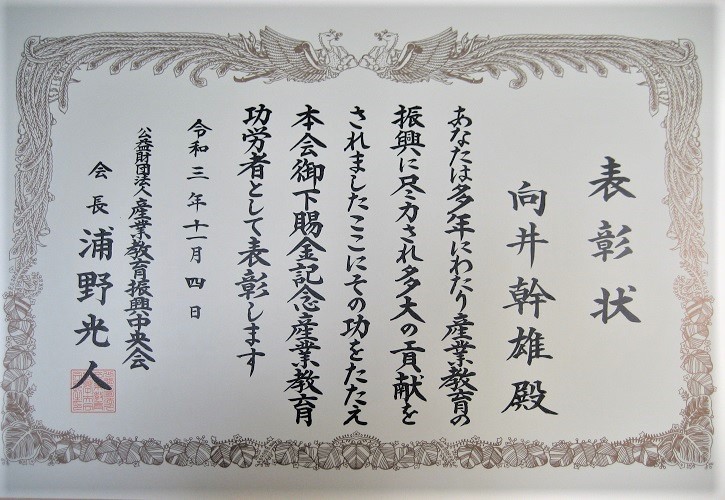 表彰状
向井幹雄殿
あなたは多年にわたり産業教育の
振興に尽力され多大の貢献を
されましたここにその功をたたえ
本会御下賜金記念産業教育
功労者として表彰します
令和三年十一月四日
公益財団法人産業教育振興中央会
会長浦野光人